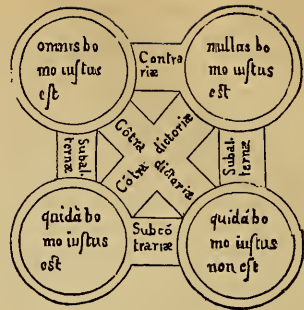 omnis ho
mo iustus
est
Contra
riæ
nullus ho
mo iustus
est
Subal-
ternæ
Cōtra dictoriæ
Cōtra dictoriæ
Subal-
ternæ
quidā ho
mo iustus
est
Subcō
trariæ
quidā ho
mo iustus
non est